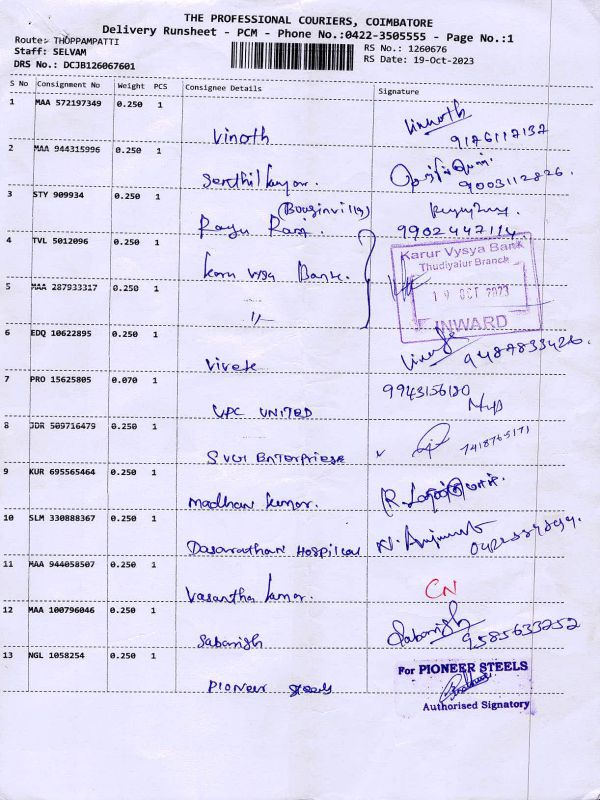 THE PROFESSIONAL COURIERS, COIMBATORE
Delivery Runsheet - PCM - Phone No.:0422-3505555 - Page No.:1
Route:- THOPPAMPATTI
Staff: SELVAM
DRS No.: DCJB126067601
RS No.: 1260676
RS Date: 19-Oct-2023
S No Consignment No Weight PCS Consignee Details Signature
1 MAA 572197349 0.250 1
Vinoth 9176117132
2 MAA 944315996 0.250 1
Senthil kumar. 9003112826.
3 STY 909934 0.250 1
Raju 9902447114
4 TVL 5012096 0.250 1
Karur Vysya Bank
Thudiyalur Branch
19 OCT 2023
INWARD
5 MAA 287933317 0.250 1
6 EDQ 10622895 0.250 1
9487833426.
7 PRO 15625805 0.070 1
9943156180
UPC UNITED
8 JDR 509716479 0.250 1
7418765171
9 KUR 695565464 0.250 1
madhan kumar.
10 SLM 330888367 0.250 1
Dasarathan Hospital
11 MAA 944058507 0.250 1
Vasantha kumar. CN
12 MAA 100796046 0.250 1
Sabarish Sabarish 9585633252
13 NGL 1058254 0.250 1
Pioneer steels
For PIONEER STEELS
Authorised Signatory